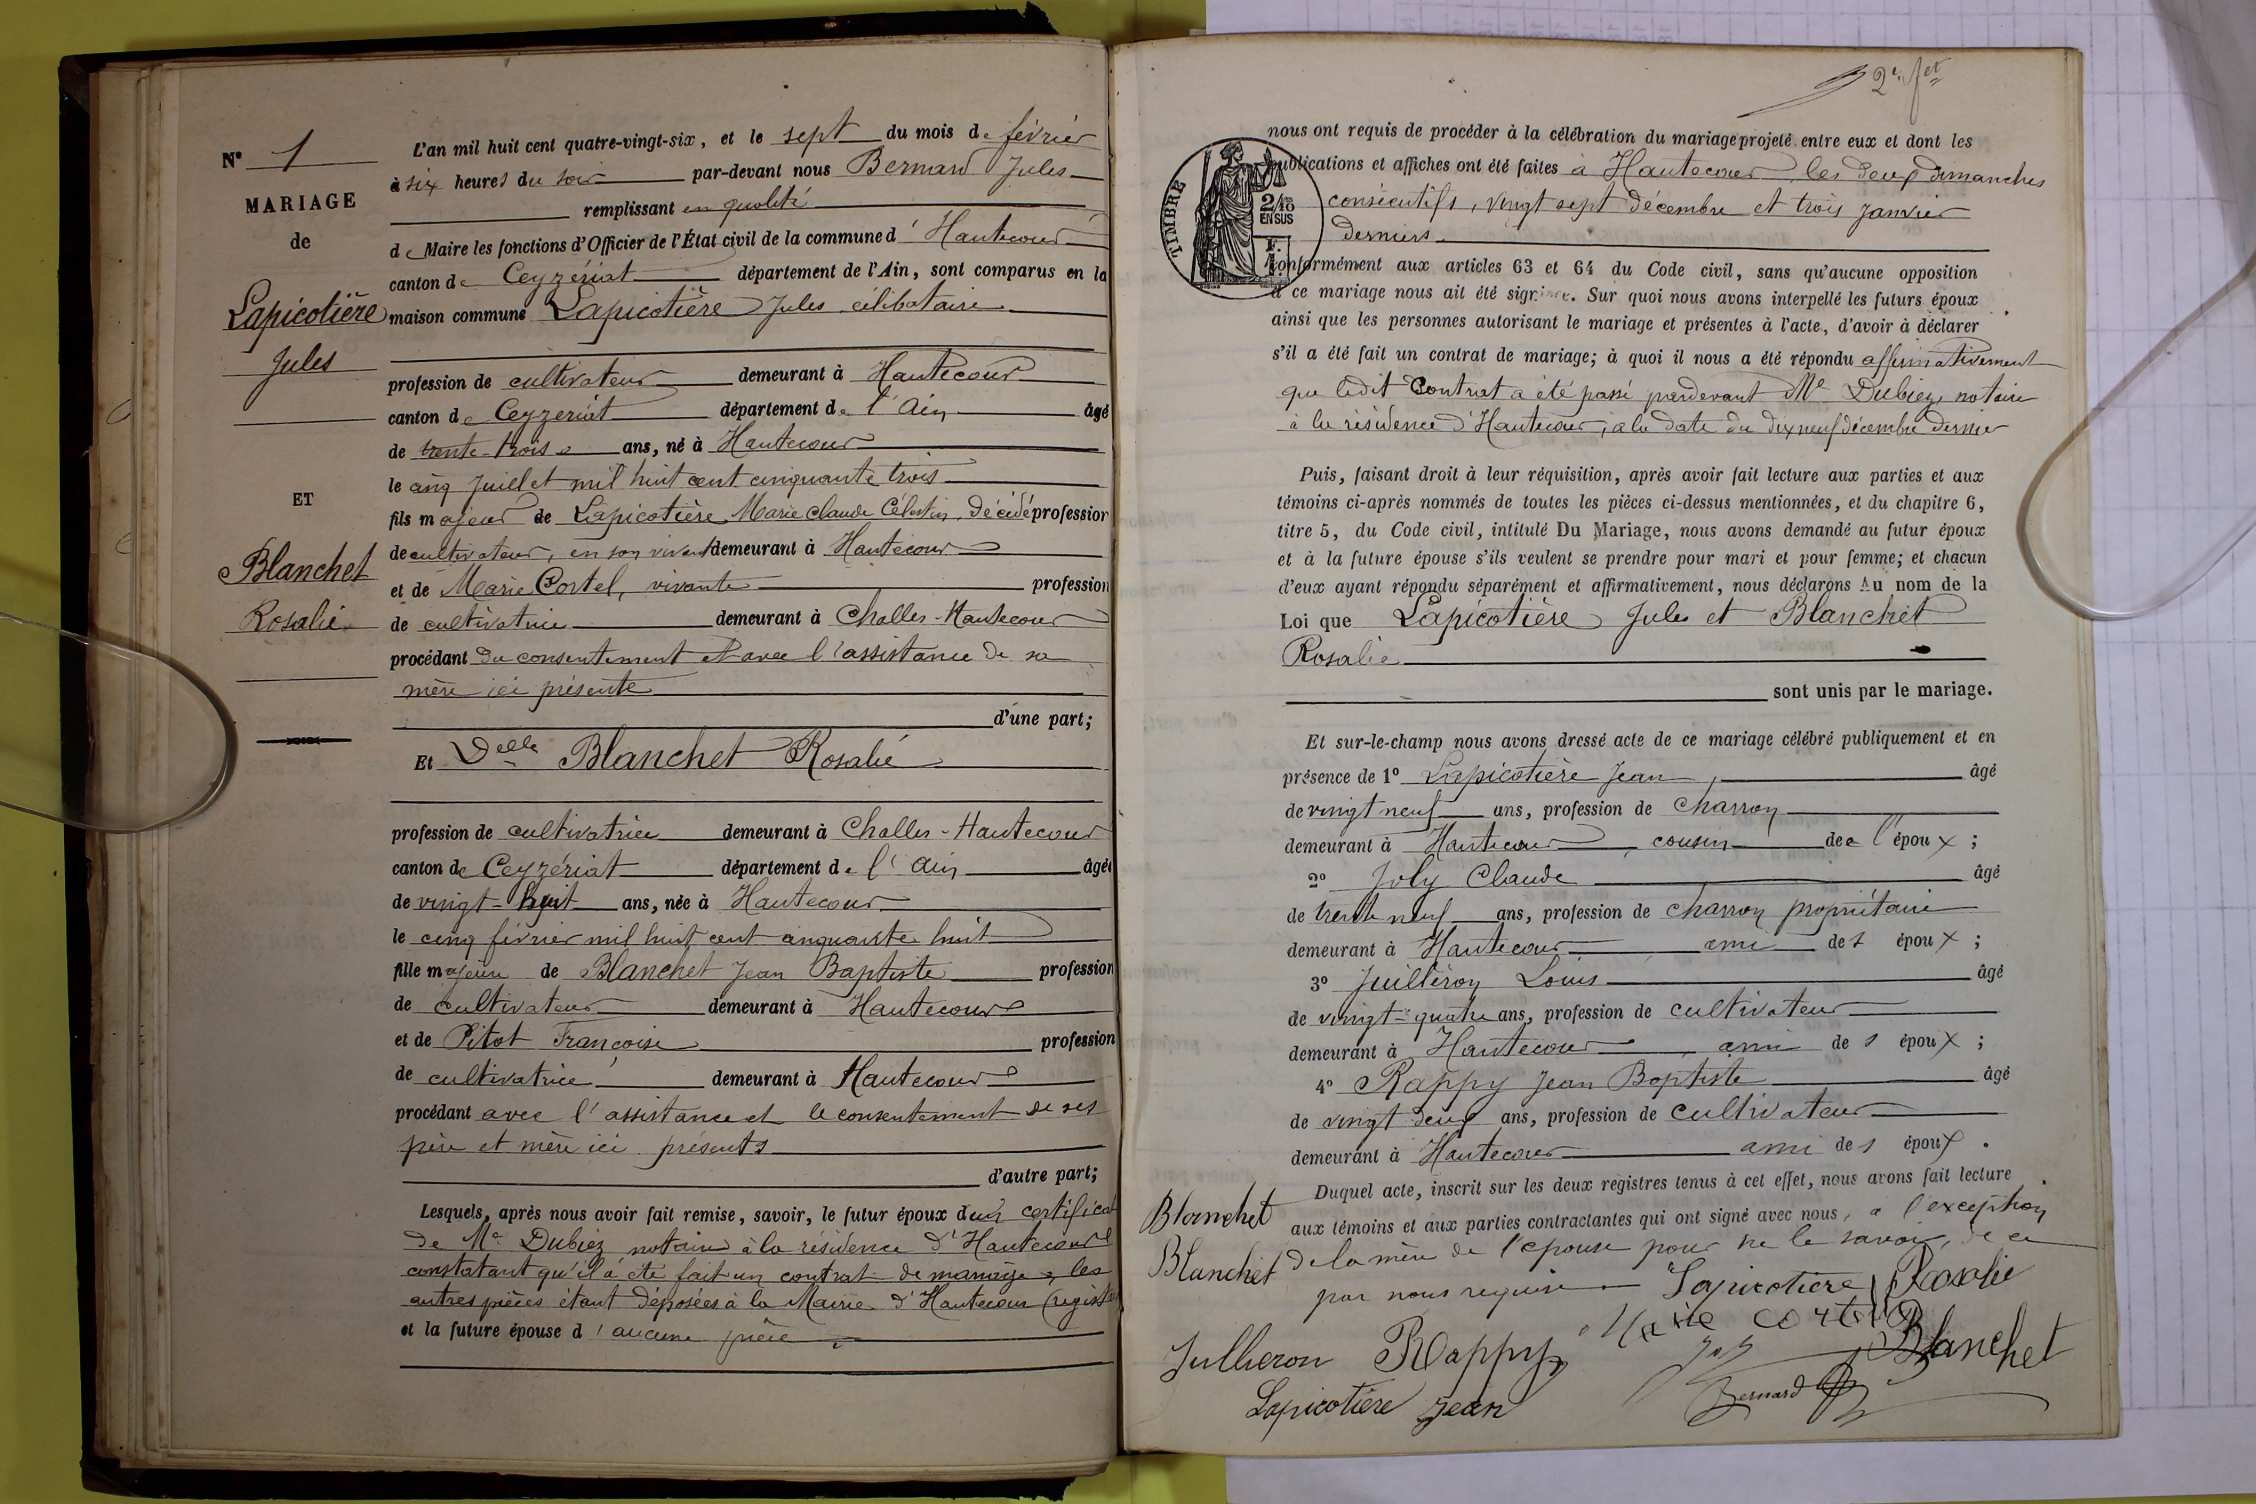 N° 1
MARIAGE
de
Lapicotière
Jules
ET
Blanchet
Rosalie
L'an mil huit cent quatre-vingt-six, et le sept du mois de février
à six heures du soir par-devant nous Bernard Jules
remplissant en qualité
de Maire les fonctions d'Officier de l'État civil de la commune d'Hautecour
canton de Ceyzériat département de l'Ain, sont comparus en la
maison commune Lapicotière Jules célibataire
profession de cultivateur demeurant à Hautecour
canton de Ceyzeriat département de l'Ain âgé
de trente-trois ans, né à Hautecour
le cinq Juillet mil huit cent cinquante trois
fils majeur de Lapicotière Marie Claude Célestin, décédé profession
de cultivateur, en son vivant demeurant à Hautecour
et de Marie Cortel, vivante profession
de cultivatrice demeurant à Challes-Hautecour
procédant du consentement et avec l'assistance de sa
mère ici présente
d'une part;
Et Delle Blanchet Rosalie
profession de cultivatrice demeurant à Challes-Hautecour
canton de Ceyzériat département de l'Ain âgée
de vingt-huit ans, née à Hautecour
le cinq février mil huit cent cinquante huit
fille majeure de Blanchet Jean Baptiste profession
de cultivateur demeurant à Hautecour
et de Pitot Françoise profession
de cultivatrice demeurant à Hautecour
procédant avec l'assistance et le consentement de ses
père et mère ici présents
d'autre part;
Lesquels, après nous avoir fait remise, savoir, le futur époux d'un certificat
de Me Dubiez notaire à la résidence d'Hautecour
constatant qu'il a été fait un contrat de mariage, les
autres pièces étant déposées à la Mairie d'Hautecour
et la future épouse d'aucune pièce
2e fet
TIMBRE
2/10
EN SUS
nous ont requis de procéder à la célébration du mariage projeté entre eux et dont les
publications et affiches ont été faites à Hautecour les deux dimanches
consécutifs, vingt sept décembre et trois janvier
derniers
conformément aux articles 63 et 64 du Code civil, sans qu'aucune opposition
à ce mariage nous ait été signifiée. Sur quoi nous avons interpellé les futurs époux
ainsi que les personnes autorisant le mariage et présentes à l'acte, d'avoir à déclarer
s'il a été fait un contrat de mariage; à quoi il nous a été répondu affirmativement
que ledit Contrat a été passé pardevant Me Dubiez notaire
à la résidence d'Hautecour, à la date du dix neuf décembre dernier
Puis, faisant droit à leur réquisition, après avoir fait lecture aux parties et aux
témoins ci-après nommés de toutes les pièces ci-dessus mentionnées, et du chapitre 6,
titre 5, du Code civil, intitulé Du Mariage, nous avons demandé au futur époux
et à la future épouse s'ils veulent se prendre pour mari et pour femme; et chacun
d'eux ayant répondu séparément et affirmativement, nous déclarons Au nom de la
Loi que Lapicotière Jules et Blanchet
Rosalie
sont unis par le mariage.
Et sur-le-champ nous avons dressé acte de ce mariage célébré publiquement et en
présence de 1° Lapicotière Jean, âgé
de vingt neuf ans, profession de charron
demeurant à Hautecour, cousin de l'époux;
2° Joly Claude âgé
de trente neuf ans, profession de charron propriétaire
demeurant à Hautecour, ami des époux;
3° Juilléron Louis âgé
de vingt-quatre ans, profession de cultivateur
demeurant à Hautecour, ami des époux;
4° Rappy Jean Baptiste âgé
de vingt deux ans, profession de cultivateur
demeurant à Hautecour ami des époux.
Duquel acte, inscrit sur les deux registres tenus à cet effet, nous avons fait lecture
aux témoins et aux parties contractantes qui ont signé avec nous, à l'exception
de la mère de l'épouse pour ne le savoir, de ce
par nous requise
Blanchet
Blanchet
Lapicotière Rosalie
Marie cortel
Blanchet
Jullieron Rappy Joly
Lapicotière Jean Bernard